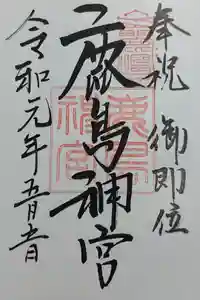 奉祝 御即位
鹿島神宮
令和元年五月